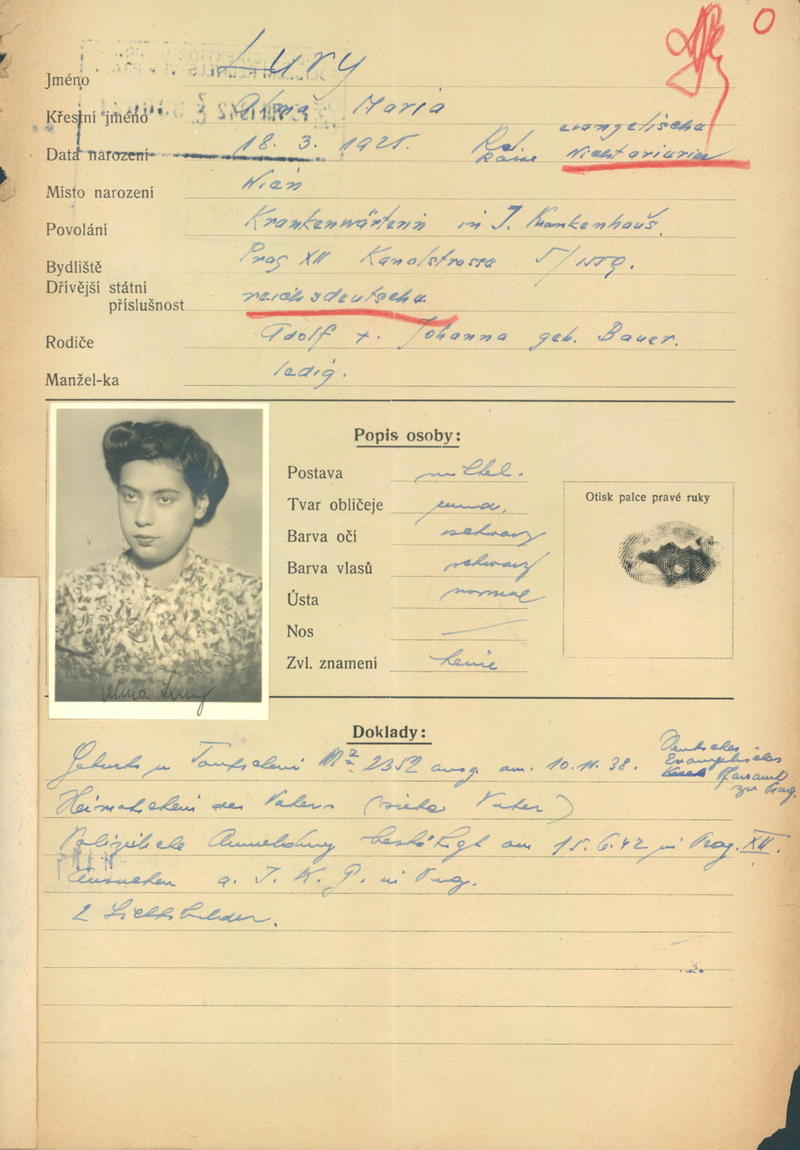 Jméno Lury
Křestní jméno Alma Maria
Data narození 18. 3. 1925. Rel. evangelische
Rasse Nichtarierin
Místo narození Wien
Povolání Krankenwärterin in J. Krankenhaus.
Bydliště Prag XII Kanalstrasse 5/1559.
Dřívější státní
příslušnost reichsdeutsche.
Rodiče Adolf + Johanna geb. Bauer.
Manžel-ka ledig.
Popis osoby:
Postava mittel.
Tvar obličeje rund,
Barva očí schwarz
Barva vlasů schwarz
Ústa normal
Nos —
Zvl. znamení keine
Otisk palce pravé ruky
Doklady:
Geburts u Taufschein Nr 2352 ausg. am. 10.11.38. Deutsches
Evangelisches
Pfarramt
zu Prag.
Heimatschein des Vaters (siehe Vater)
Polizeiliche Anmeldung bestätigt am 15.6.42 in Prag. XII.
Ansuchen a. J. K. G. in Prag.
2 Lichtbilder.